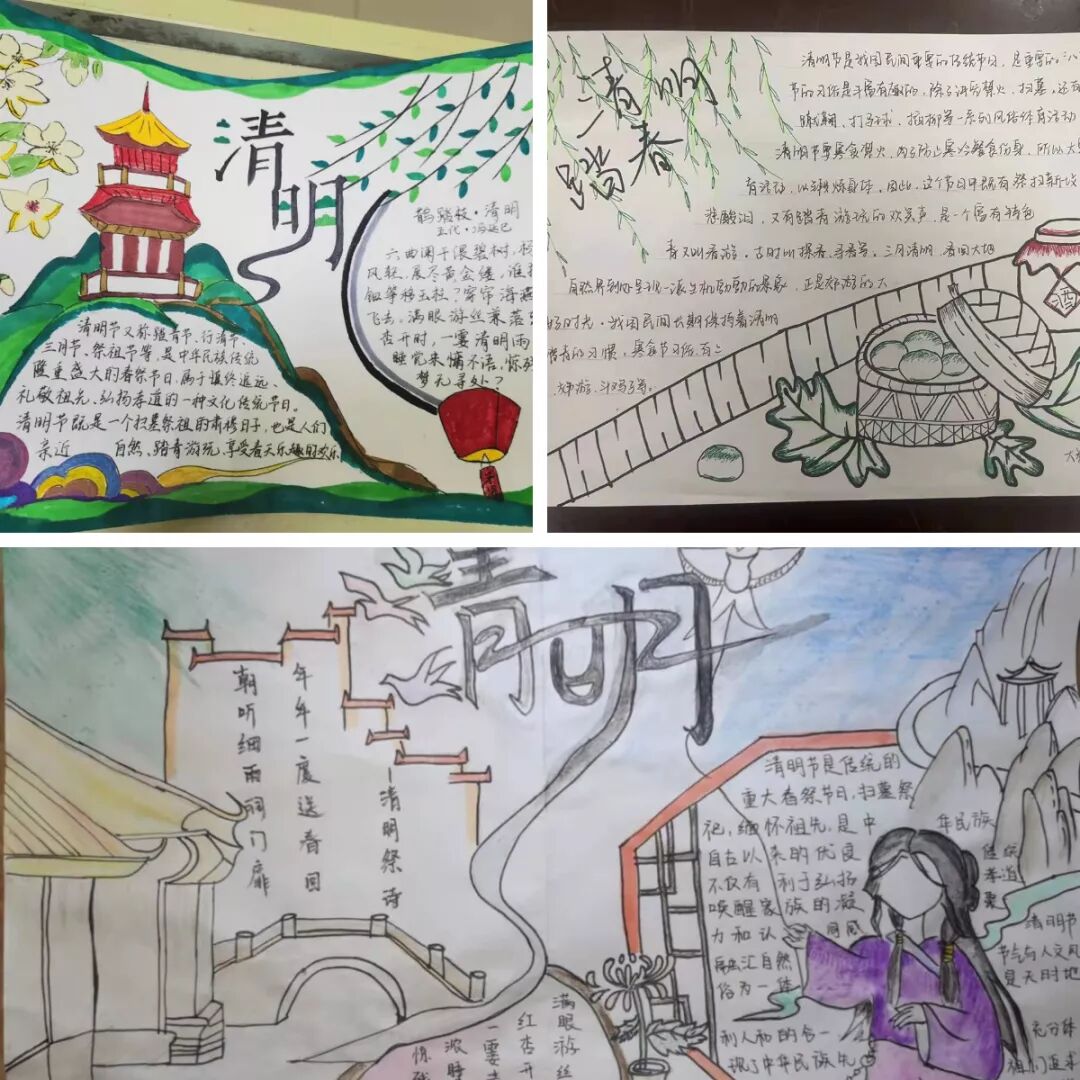 清明
鹊踏枝·清明
五代·冯延巳
六曲阑干偎碧树,杨
风轻,展尽黄金缕,谁把
钿筝移玉柱?穿帘海燕
飞去。满眼游丝兼落
杏开时,一霎清明雨
睡觉来慵不语,惊残
梦无寻处?
清明节又称踏青节、行清节、
三月节、祭祖节等,是中华民族传统
隆重盛大的春祭节日,属于慎终追远、
礼敬祖先、弘扬孝道的一种文化传统节日。
清明节既是一个扫墓祭祖的肃穆日子,也是人们
亲近 自然、踏青游玩、享受春天乐趣的欢乐
清明
踏春
清明节是我国民间重要的传统节日,是重要的"八
节的习俗是丰富有趣的,除了讲究禁火、扫墓,还有
蹴鞠、打马球、插柳等一系列风俗体育活动
清明节要寒食禁火,为了防止寒冷餐食伤身,所以大
有活动,以锻炼身体。因此,这个节日中既有祭扫新坟
酸泪,又有踏青游玩的欢笑声,是一个富有特色
青又叫春游,古时叫探春、寻春等。三月清明,春回大地
自然界到处呈现一派生机勃勃的景象,正是郊游的大
好时光。我国民间长期保持着清明
踏青的习惯。寒食节习俗,有
郊游、斗鸡子等。
酒
清明
年年一度送春回
朝听细雨祠门扉
—清明祭诗
清明节是传统的
重大春祭节日,扫墓祭
祀,缅怀祖先,是中 华民族
自古以来的优良 传统
不仅有 利于弘扬 孝道
唤醒家族的凝 聚
力和认 同感
融汇自然
俗为一体
清明节
节气与人文风
是天时地
利人和的合一 充分体
现了中华民族先 祖们追求
满眼游丝
红杏开
一霎清
浓睡
惊残